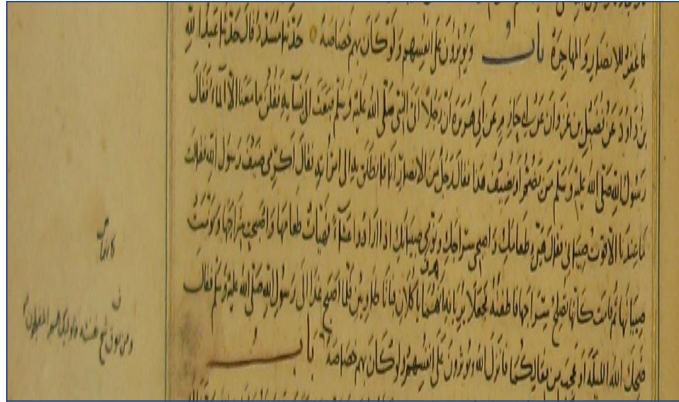 فاغفر للانصار والمهاجرة باب ويوثرون على انفسهم ولو كان بهم خصاصة حدثنا مسدد قال حدثنا عبد الله
بن داود عن فضيل بن غزوان عن ابي حازم عن ابي هريرة ان رجلا اتى النبي صلى الله عليه وسلم فبعث الى نسائه فقلن ما معنا الا الماء فقال
رسول الله صلى الله عليه وسلم من يضم او يضيف هذا فقال رجل من الانصار انا فانطلق به الى امراته فقال اكرمي ضيف رسول الله فقالت
ما عندنا الا قوت صبياني فقال هيئ طعامك واصبحي سراجك ونومي صبيانك اذا ارادوا عشاء فهيات طعامها واصبحت سراجها ونومت
صبيانها ثم قامت كانها تصلح سراجها فاطفته فجعلا يريانه انهما ياكلان فباتا طاويين فلما اصبح غدا الى رسول الله صلى الله عليه وسلم فقال
ضحك الله الليلة او عجب من فعالكما فانزل الله ويوثرون على انفسهم ولو كان بهم خصاصة باب
ومن يوق شح نفسه فاولئك هم المفلحون